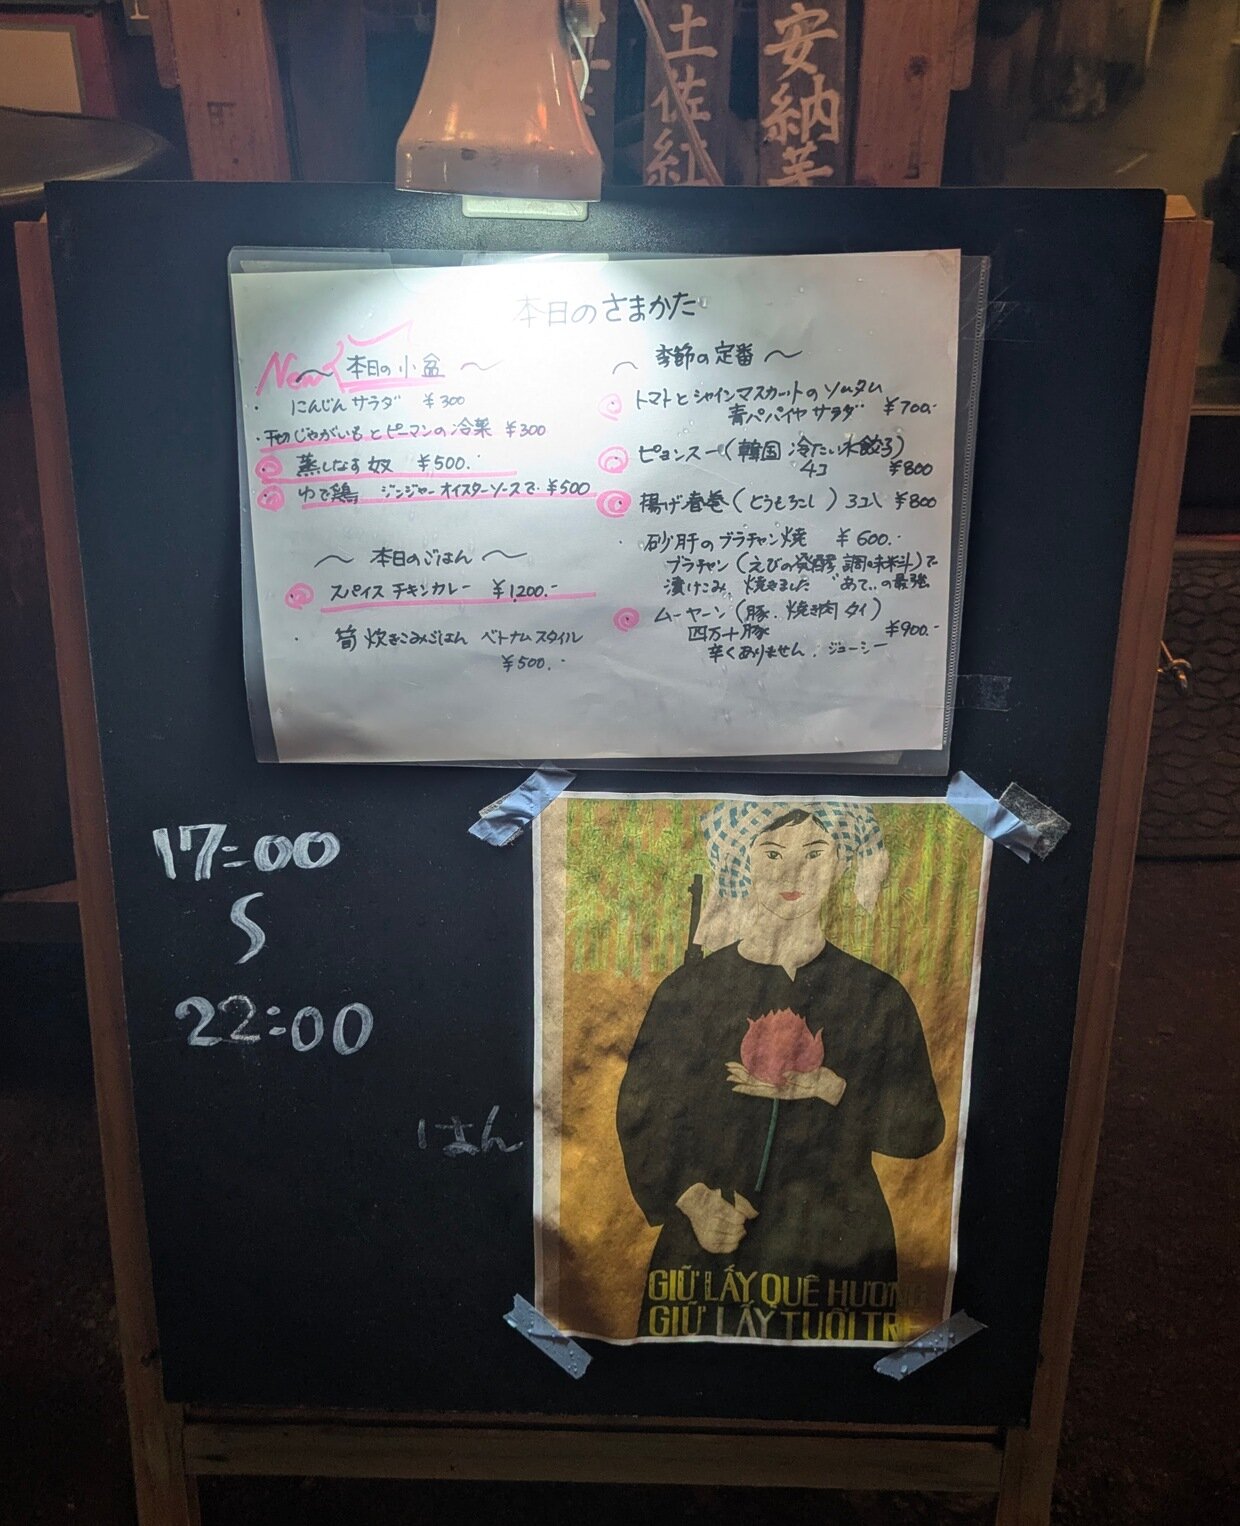 土佐紅
安納芋
本日のさまかた
New
〜 本日の小盆 〜
・にんじんサラダ ¥300
・千切じゃがいもとピーマンの冷菜 ¥300
蒸しなす奴 ¥500.-
ゆで鶏 ジンジャーオイスターソースで ¥500
〜 本日のごはん 〜
スパイスチキンカレー ¥1,200.-
・筍炊きこみごはん ベトナムスタイル
¥500.-
〜 季節の定番 〜
トマトとシャインマスカットのソムタム
青パパイヤサラダ ¥700.-
ピョンスー(韓国 冷たい水餃子)
4コ ¥800
揚げ春巻(とうもろこし)3コ入 ¥800
・砂肝のブラチャン焼 ¥600.-
ブラチャン(えびの発酵調味料)で
漬けこみ、焼きました "あて"の最強
ムーヤーン(豚・焼き肉 タイ)
四万十豚 ¥900.-
辛くありません。ジューシー
17:00
〜
22:00
はん
GIỮ LẤY QUÊ HƯƠNG
GIỮ LẤY TUỔI TRẺ